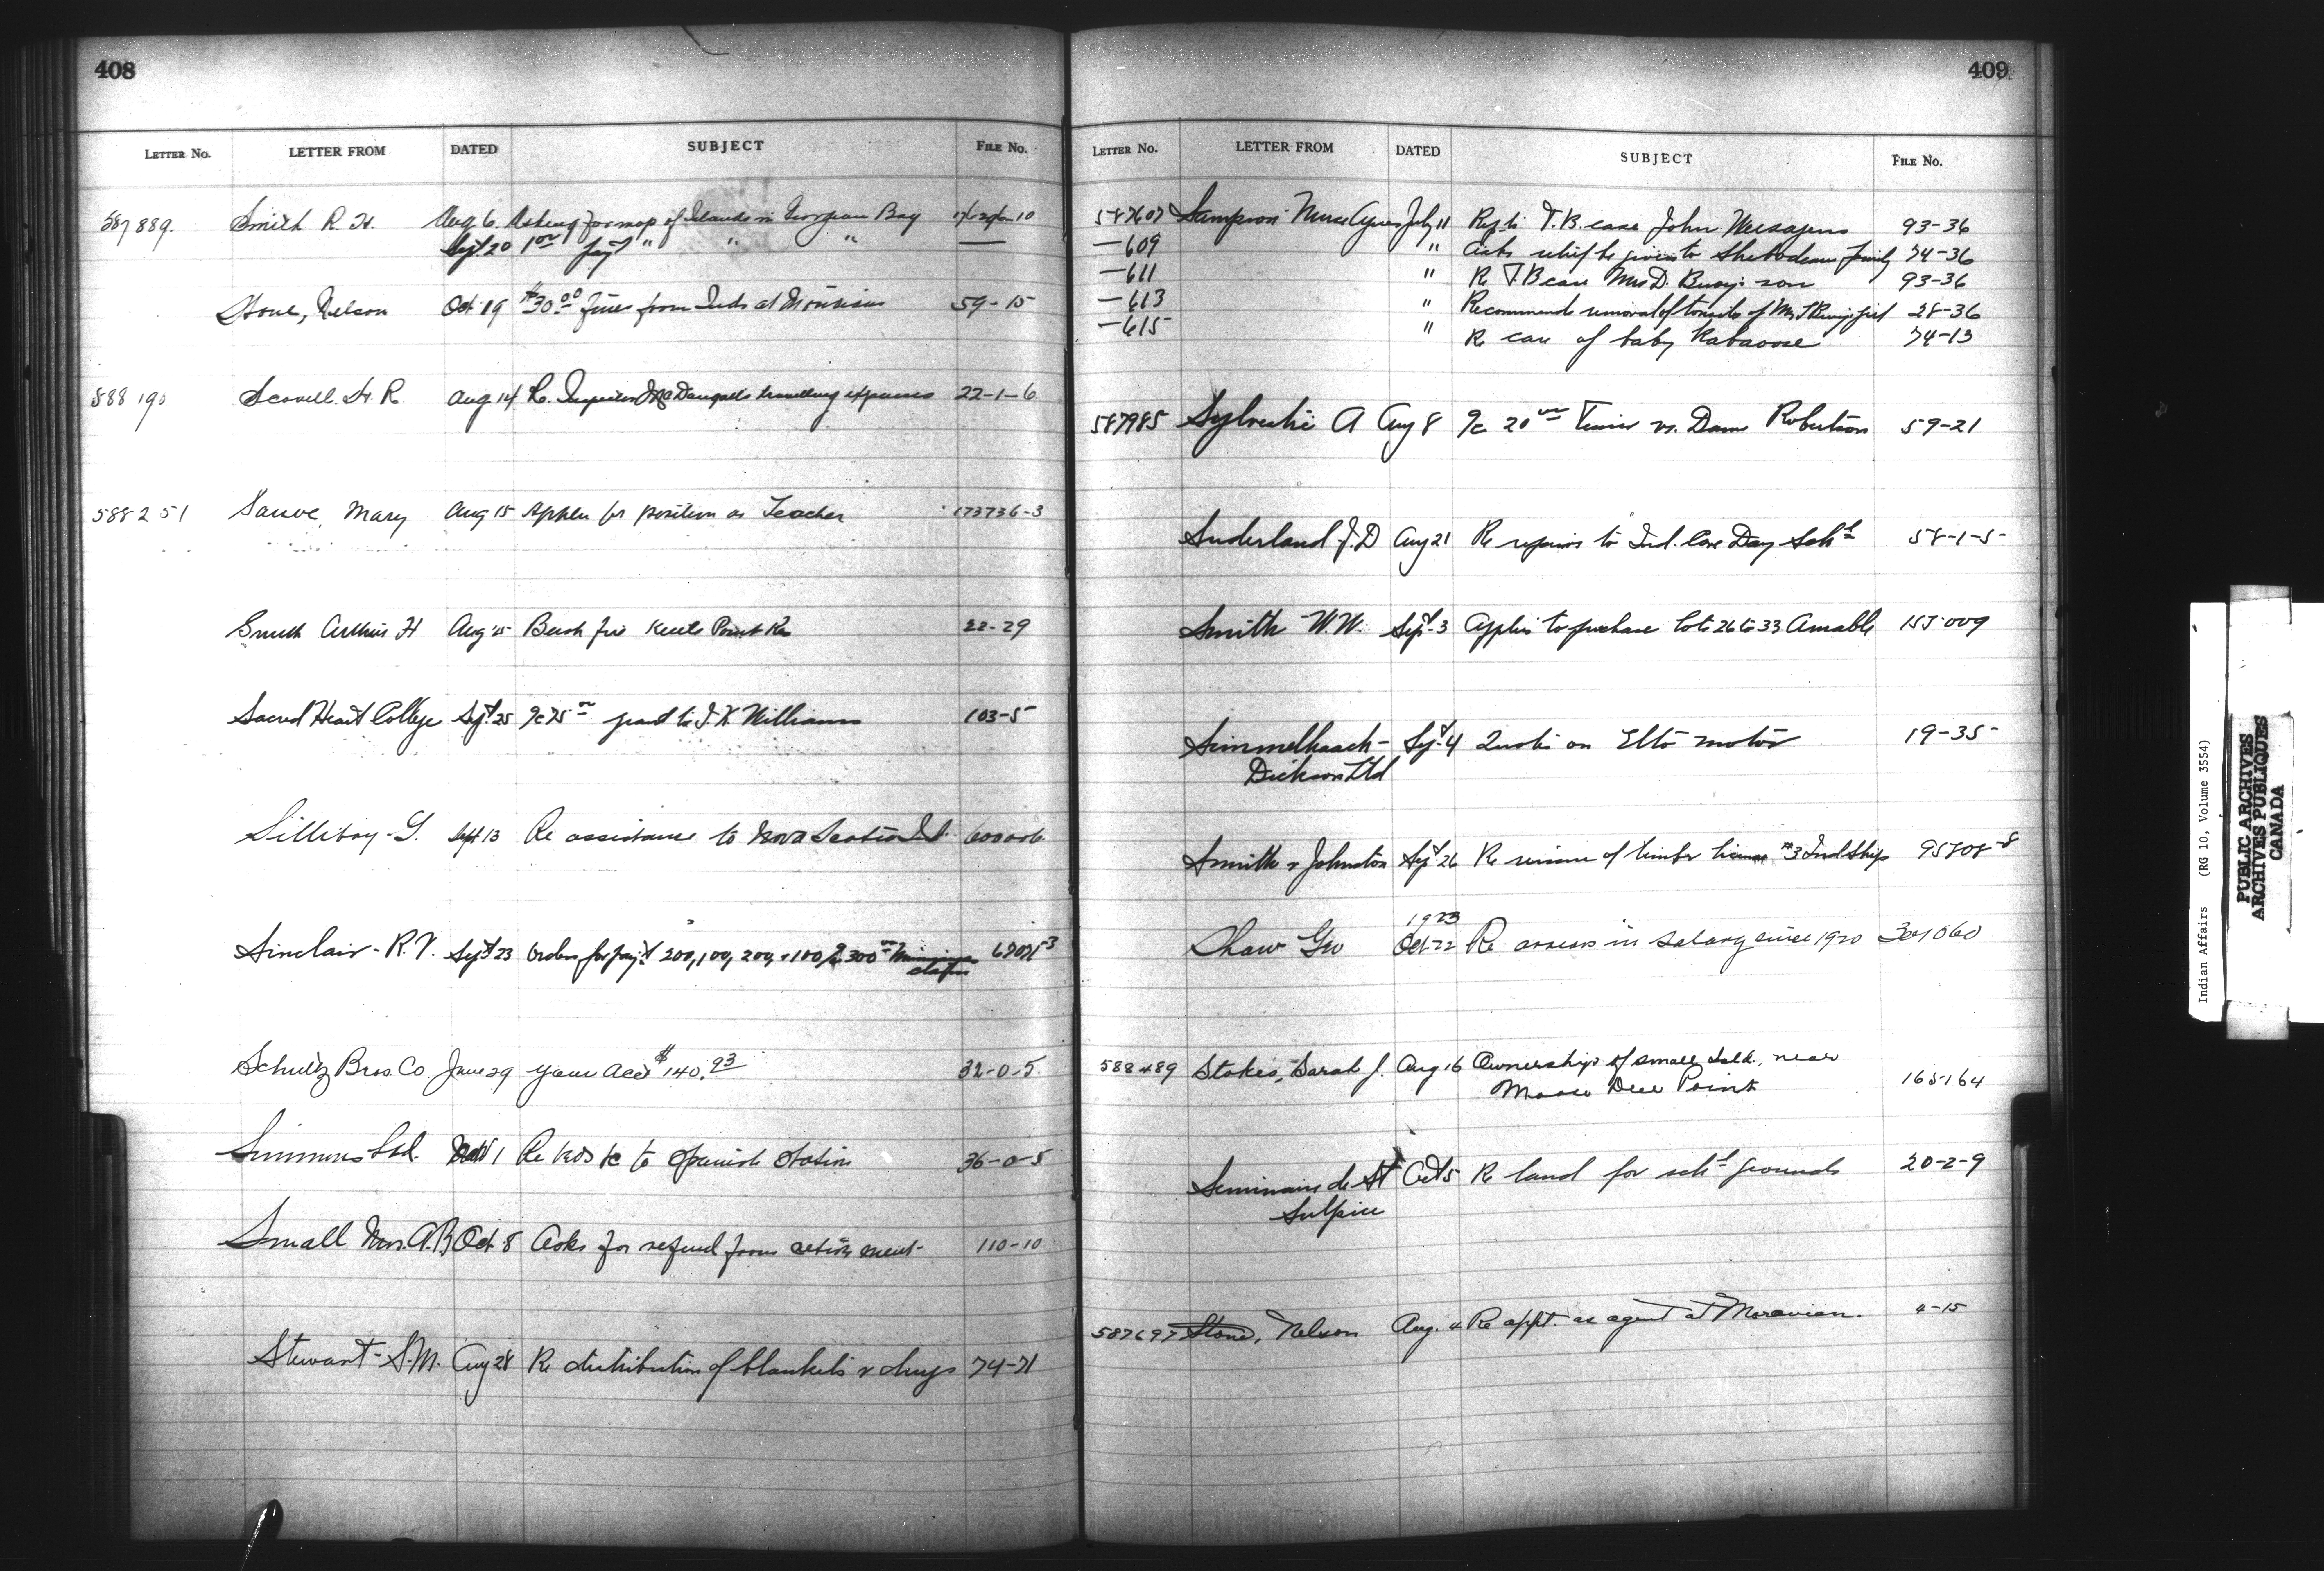 408
LETTER No. LETTER FROM DATED SUBJECT FILE No.
587889. Smith R. H. Aug 6. Asking for map of Islands in Georgian Bay
Sept 20 1 00 pay't " " "
Stone, Nelson Oct 19 $30 00 fine from Inds at Moravian 59-15
588190 Scovell. H. R Aug 14 Re. Inspector McDougalls travelling expenses 22-1-6
588251 Sauve, Mary Aug 15 Applen for position as Teacher 173736-3
Smith Arthur H Aug 25 Bush fire Kettle Point Res 22-29
Sacred Heart College Sept 25 75 00 grant to J. K Williams 103-5
Silliboy - G. Sept 13 Re assistance to Nova Scotia Ind. 600006
Sinclair - R. V. Sept 23 Orders for pay't 200, 100, 200, + 100 300 00 claims
Schultz Bros. Co. June 29 your acct $140.93 32-0-5.
Simmons Ltd. Re to Spanish Station 36-0-5
Small Mrs. A. B Oct 8 Asks for refund from retirement 110-10
Stewart - S. M. Aug 28 Re distribution of blankets & drugs 74-71
409
LETTER No. LETTER FROM DATED SUBJECT FILE No.
587607 Sampson Nurse Agnes July 11 T. B. case John 93-36
—609 " Asks relief be given to family 74-36
—611 " Re T. B case Mrs D. son 93-36
—613 " Recommends removal of tonsils of Mrs girl 28-36
—615 " Re care of baby Kabaoose 74-13
587985 Sylvestre A Aug 8 20 00 vs. Dame Robertson 59-21
Suderland J. D Aug 21 Re repairs to Ind. Cove Day Sch l 58-1-5
Smith W. W. Sept. 3 Applies to purchase lots 26 to 33 Amable 155009
Simmelhaack - Sept. 4 Quotes on Elto motor 19-35
Dickson Ltd
Smith & Johnston Sept 26 Re of timber license #3 Ind Ships 95808-8
1923
Shaw Geo Oct-22 Re arrears in salary since 1920 301060
588489 Stokes, Sarah J. Aug 16 Ownership of small Isld. near
Moose Deer Point 165164
Seminaire de St Oct 5 Re land for sch l grounds 20-2-9
Sulpice
587697 Stone, Nelson Aug. 4 Re appt. as agent at Moravian. 4-15
Indian Affairs (RG 10, Volume 3554)
PUBLIC ARCHIVES
ARCHIVES PUBLIQUES
CANADA